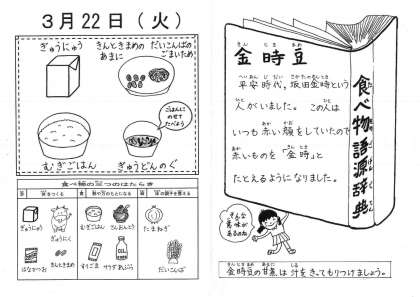 3月22日(火)
ぎゅうにゅう
きんときまめの
あまに
だいこんばの
ごまいため
ごはんに
のせて
たべよう
むぎごはん
ぎゅうどんのぐ
食べ物の三つのはたらき
赤
体をつくる
黄
熱や力のもとになる
緑
体の調子を整える
ぎゅうにゅう
ぎゅうにく
はなかつお
きんときまめ
むぎごはん
さとう
すりごま
サラダあぶら
たまねぎ
だいこんば
食べ物語源辞典
金時豆
きん
とき
まめ
平安時代。坂田金時という
へいあんじだい
さかたのきんときという
人がいました。この人は
いつも赤い顔をしていたので
赤いものを「金時」と
たとえるようになりました。
そんな
意味が
あるのね
金時豆の甘煮は汁をきってもりつけましょう。